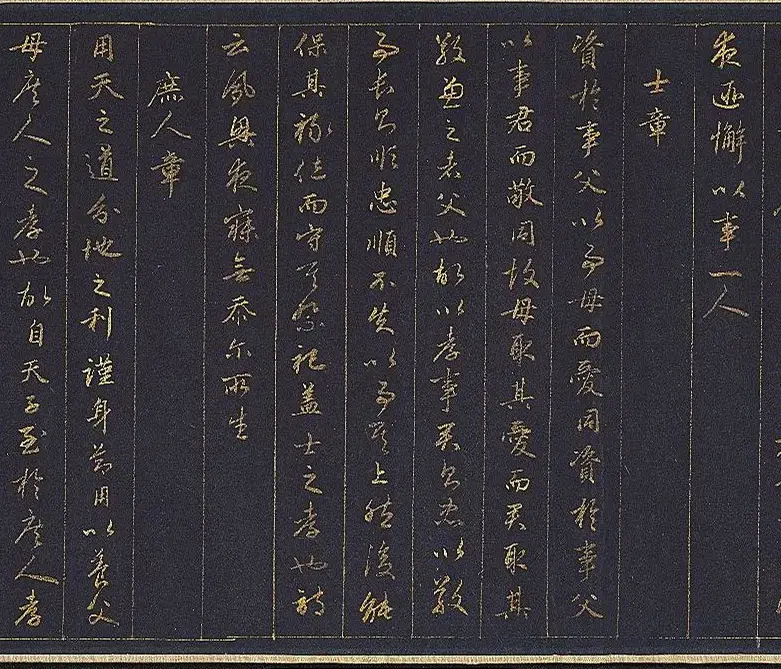 夜匪懈以事一人
士章
資於事父以事母而愛同資於事父
以事君而敬同故母取其愛而君取其
敬兼之者父也故以孝事君則忠以敬
事長則順忠順不失以事其上然後能
保其祿位而守其祭祀蓋士之孝也詩
云夙興夜寐無忝尔所生
庶人章
用天之道分地之利謹身節用以養父
母庶人之孝也故自天子至於庶人孝